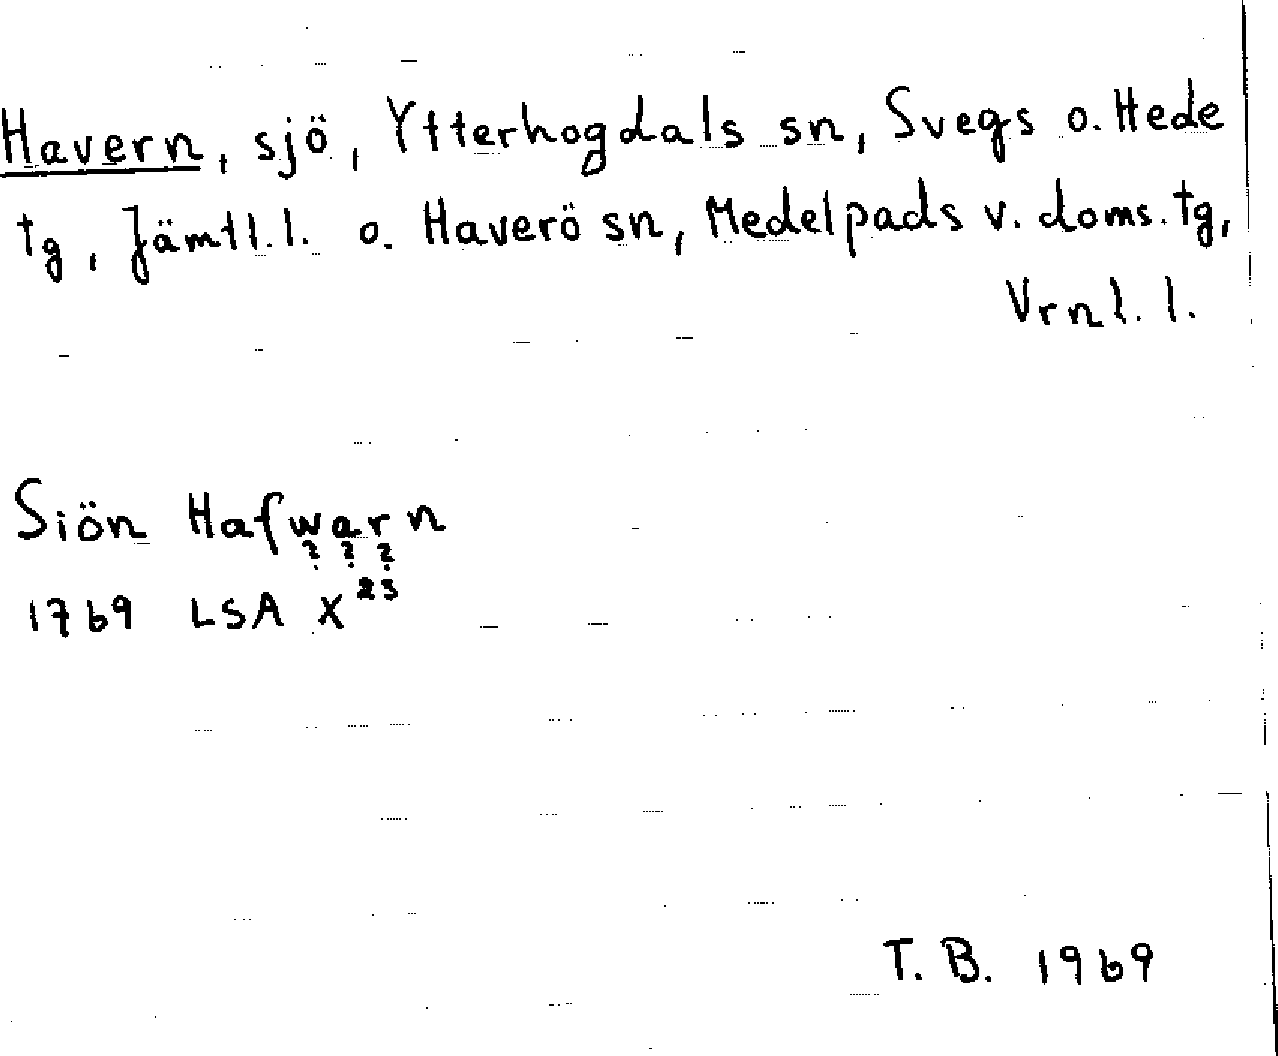 Havern, sjö, Ytterhogdals sn, Svegs o. Hede
tg, Jämtl. l. o. Haverö sn, Medelpads v. doms. tg,
Vrnl. l.
Siön Hafwarn
? ? ?
1769 LSA X 23
T. B. 1969